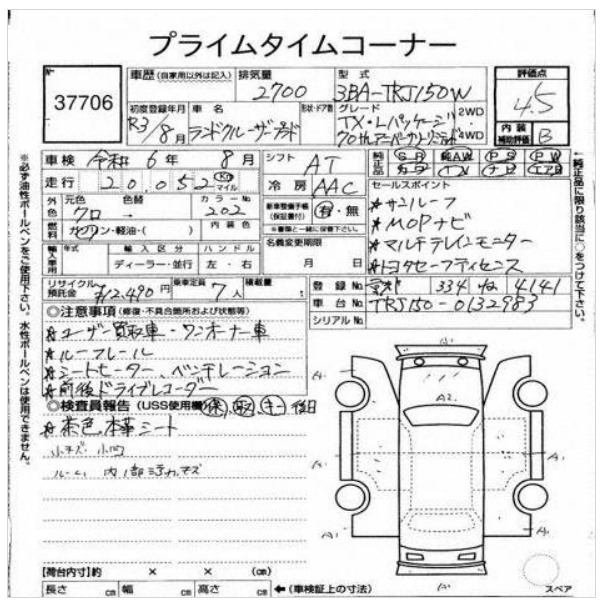 プライムタイムコーナー
No
37706
車歴(自家用以外は記入)
排気量
2700
型式
3BA-TRJ150W
評価点
4.5
初度登録年月
R3/8月
車名
ランドクルーザープラド
形状・ドア数
グレード
TX・Lパッケージ
70thアニバーサリーリミテッド
2WD
4WD
内装
補助評価
B
車検 令和 6年 8月
シフト AT
純正品
SR AW PS PW
カワ TV ナビ エアB
走行 20,052 Km マイル
冷房 AAC
セールスポイント
外色
元色
クロ
色替
カラーNo
202
新車整備手帳
(保証書付)
有・無
※書類と一緒に保管下さい。
★サンルーフ
★MOPナビ
★マルチテレインモニター
★トヨタセーフティセンス
燃料
ガソリン・軽油・( )
内装色
名義変更期限
月 日
輸入車用
年式
輸入区分
ディーラー・並行
ハンドル
左・右
リサイクル
預託金
¥12,490円
乗車定員
7人
積載量
登録No
334 ね 4141
車台No
TRJ150-0132983
シリアルNo
◎注意事項(修復・不具合箇所および状態等)
★ユーザー買取車・ワンオーナー車
★ルーフレール
★シートヒーター、ベンチレーション
★前後ドライブレコーダー
◎検査員報告(USS使用欄)
保 取 キー 後日
★茶色本革シート
小キズ・小凹
ルーム 内
A2
【荷台内寸】約 × × (cm)
長さ cm 幅 cm 高さ cm ←(車検証上の寸法)
スペア
※必ず油性ボールペンをご使用下さい。水性ボールペンは使用できません。
←純正品に限り該当に○をつけて下さい。